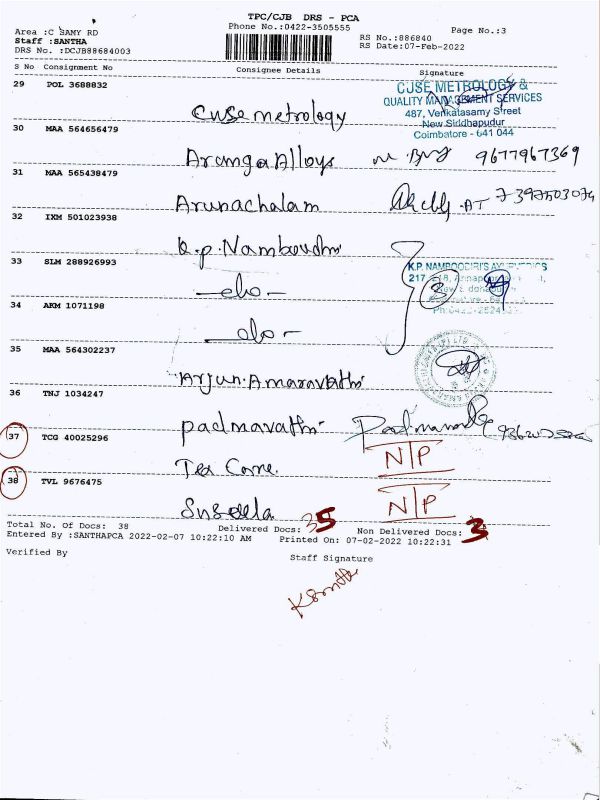 TPC/CJB DRS - PCA
Phone No.:0422-3505555
Page No.:3
Area :C SAMY RD
Staff :SANTHA
DRS No. :DCJB88684003
RS No.:886840
RS Date:07-Feb-2022
S No Consignment No Consignee Details Signature
29 POL 3688832
Cuse metrology
CUSE METROLOGY &
QUALITY MANAGEMENT SERVICES
487, Venkatasamy Street
New Siddhapudur
Coimbatore - 641 044
30 MAA 564656479
Aranga Alloys 9677967369
31 MAA 565438479
Arunachalam 7397503074
32 IXM 501023938
K.p. Namboudhri
33 SLM 288926993
-do-
K.P. NAMBOODIRI'S
217
3
34 AKM 1071198
-do-
35 MAA 564302237
Arjun Amaravathi
36 TNJ 1034247
padmavathi
37 TCG 40025296
Tea Cane N/P
38 TVL 9676475
Suseela N/P
Total No. Of Docs: 38 Delivered Docs: 35 Non Delivered Docs: 3
Entered By :SANTHAPCA 2022-02-07 10:22:10 AM Printed On: 07-02-2022 10:22:31
Verified By Staff Signature